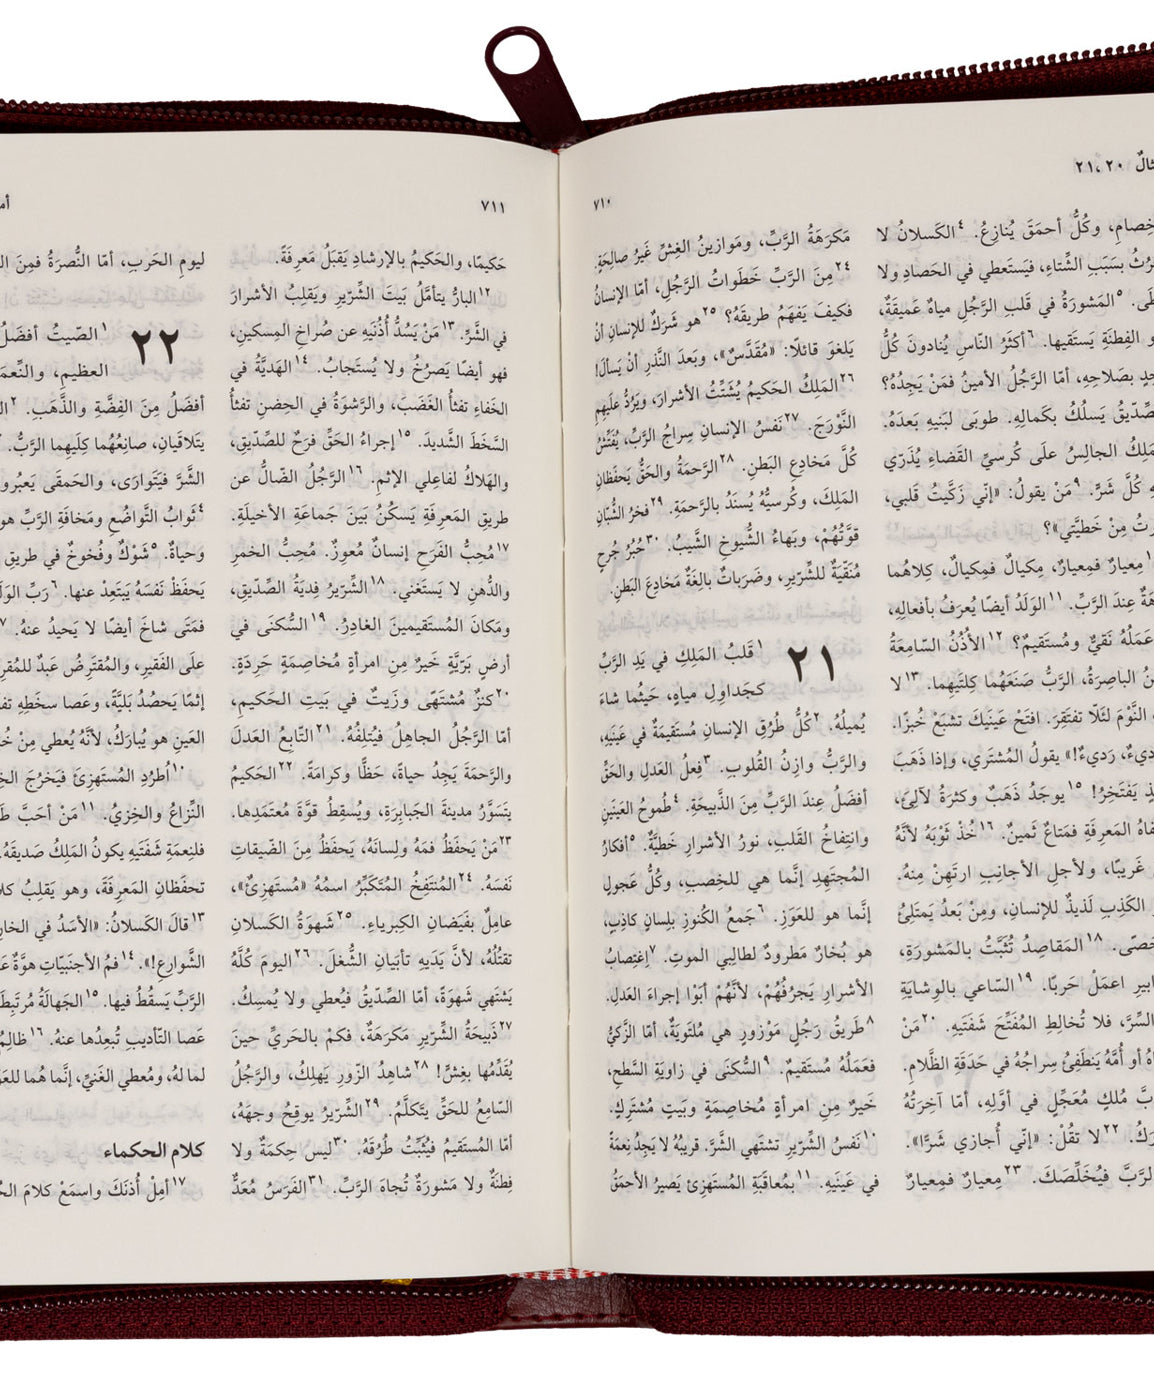 ٢٠، ٢١
وكُلُّ أحمَقَ يُنازِعُ. ٤الكَسلانُ لا
بسَبَبِ الشِّتاءِ، فيَستَعطي في الحَصادِ ولا
٥المَشورَةُ في قَلبِ الرَّجُلِ مياهٌ عَميقَةٌ،
الفِطنَةِ يَستَقيها. ٦أكثَرُ النّاسِ يُنادونَ كُلُّ
بصَلاحِهِ، أمّا الرَّجُلُ الأمينُ فمَنْ يَجِدُهُ؟
يَسلُكُ بكَمالِهِ. طوبَى لبَنيهِ بَعدَهُ.
الجالِسُ علَى كُرسيِّ القَضاءِ يُذَرّي
كُلَّ شَرٍّ. ٩مَنْ يقولُ: «إنّي زَكَّيتُ قَلبي،
مِنْ خَطيَّتي»؟
مِعيارٌ فمِعيارٌ، مِكيالٌ فمِكيالٌ، كِلاهُما
عِندَ الرَّبِّ. ١١الوَلَدُ أيضًا يُعرَفُ بأفعالِهِ،
عَمَلُهُ نَقيٌّ ومُستَقيمٌ؟ ١٢الأُذُنُ السّامِعَةُ
الباصِرَةُ، الرَّبُّ صَنَعَهُما كِلتَيهِما. ١٣لا
النَّوْمَ لئَلّا تفتَقِرَ. افتَحْ عَينَيكَ تشبَعْ خُبزًا.
رَديءٌ!» يقولُ المُشتَري، وإذا ذَهَبَ
يَفتَخِرُ! ١٥يوجَدُ ذَهَبٌ وكثرَةُ لآلِئَ،
المَعرِفَةِ فمَتاعٌ ثَمينٌ. ١٦خُذْ ثَوْبَهُ لأنَّهُ
غَريبًا، ولأجلِ الأجانِبِ ارتَهِنْ مِنهُ.
الكَذِبِ لَذيذٌ للإنسانِ، ومِنْ بَعدُ يَمتَلِئُ
١٨المَقاصِدُ تُثَبَّتُ بالمَشورَةِ،
اعمَلْ حَربًا. ١٩السّاعي بالوِشايَةِ
السِّرَّ، فلا تُخالِطِ المُفَتِّحَ شَفَتَيهِ. ٢٠مَنْ
أو أُمَّهُ يَنطَفِئُ سِراجُهُ في حَدَقَةِ الظَّلامِ.
مُلكٍ مُعَجِّلٍ في أوَّلِهِ، أمّا آخِرَتُهُ
٢٢لا تقُلْ: «إنّي أُجازي شَرًّا».
الرَّبَّ فيُخَلِّصَكَ. ٢٣مِعيارٌ فمِعيارٌ
٧١٠
مَكرَهَةُ الرَّبِّ، ومَوازينُ الغِشِّ غَيرُ صالِحَةٍ.
٢٤مِنَ الرَّبِّ خَطَواتُ الرَّجُلِ، أمّا الإنسانُ
فكيفَ يَفهَمُ طريقَهُ؟ ٢٥هو شَرَكٌ للإنسانِ أنْ
يَلغوَ قائلًا: «مُقَدَّسٌ»، وبَعدَ النَّذرِ أنْ يَسألَ!
٢٦المَلِكُ الحَكيمُ يُشَتِّتُ الأشرارَ، ويَرُدُّ علَيهِمِ
النَّوْرَجَ. ٢٧نَفَسُ الإنسانِ سِراجُ الرَّبِّ، يُفَتِّشُ
كُلَّ مَخادِعِ البَطنِ. ٢٨الرَّحمَةُ والحَقُّ يَحفَظانِ
المَلِكَ، وكُرسيُّهُ يُسنَدُ بالرَّحمَةِ. ٢٩فخرُ الشُّبّانِ
قوَّتُهُمْ، وبَهاءُ الشُّيوخِ الشَّيبُ. ٣٠حُبُرُ جُرحٍ
مُنَقّيَةٌ للشِّرّيرِ، وضَرَباتٌ بالِغَةٌ مَخادِعَ البَطنِ.
٢١ ١قَلبُ المَلِكِ في يَدِ الرَّبِّ
كجَداوِلِ مياهٍ، حَيثُما شاءَ
يُميلُهُ. ٢كُلُّ طُرُقِ الإنسانِ مُستَقيمَةٌ في عَينَيهِ،
والرَّبُّ وازِنُ القُلوبِ. ٣فِعلُ العَدلِ والحَقِّ
أفضَلُ عِندَ الرَّبِّ مِنَ الذَّبيحَةِ. ٤طُموحُ العَينَينِ
وانتِفاخُ القَلبِ، نورُ الأشرارِ خَطيَّةٌ. ٥أفكارُ
المُجتَهِدِ إنَّما هي للخِصبِ، وكُلُّ عَجولٍ
إنَّما هو للعَوَزِ. ٦جَمعُ الكُنوزِ بلِسانٍ كاذِبٍ،
هو بُخارٌ مَطرودٌ لطالِبي الموتِ. ٧اِغتِصابُ
الأشرارِ يَجرُفُهُمْ، لأنَّهُمْ أبَوْا إجراءَ العَدلِ.
٨طَريقُ رَجُلٍ مَوْزورٍ هي مُلتَويَةٌ، أمّا الزَّكيُّ
فعَمَلُهُ مُستَقيمٌ. ٩السُّكنَى في زاويَةِ السَّطحِ،
خَيرٌ مِنِ امرأةٍ مُخاصِمَةٍ وبَيتٍ مُشتَرِكٍ.
١٠نَفسُ الشِّرّيرِ تشتَهي الشَّرَّ. قريبُهُ لا يَجِدُ نِعمَةً
في عَينَيهِ. ١١بمُعاقَبَةِ المُستَهزِئ يَصيرُ الأحمَقُ
٧١١
حَكيمًا، والحَكيمُ بالإرشادِ يَقبَلُ مَعرِفَةً.
١٢البارُّ يتأمَّلُ بَيتَ الشِّرّيرِ ويَقلِبُ الأشرارَ
في الشَّرِّ. ١٣مَنْ يَسُدُّ أُذُنَيهِ عن صُراخِ المِسكينِ،
فهو أيضًا يَصرُخُ ولا يُستَجابُ. ١٤الهَديَّةُ في
الخَفاءِ تفثأُ الغَضَبَ، والرَّشوَةُ في الحِضنِ تفثأُ
السَّخَطَ الشَّديدَ. ١٥إجراءُ الحَقِّ فرَحٌ للصِّدّيقِ،
والهَلاكُ لفاعِلي الإثمِ. ١٦الرَّجُلُ الضّالُّ عن
طريقِ المَعرِفَةِ يَسكُنُ بَينَ جَماعَةِ الأخيلَةِ.
١٧مُحِبُّ الفَرَحِ إنسانٌ مُعوِزٌ. مُحِبُّ الخمرِ
والدُّهنِ لا يَستَغني. ١٨الشِّرّيرُ فِديَةُ الصِّدّيقِ،
ومَكانَ المُستَقيمينَ الغادِرُ. ١٩السُّكنَى في
أرضٍ بَرّيَّةٍ خَيرٌ مِنِ امرأةٍ مُخاصِمَةٍ حَرِدَةٍ.
٢٠كنزٌ مُشتَهًى وزَيتٌ في بَيتِ الحَكيمِ،
أمّا الرَّجُلُ الجاهِلُ فيُتلِفُهُ. ٢١التّابِعُ العَدلَ
والرَّحمَةَ يَجِدُ حياةً، حَظًّا وكرامَةً. ٢٢الحَكيمُ
يتَسَوَّرُ مدينةَ الجَبابِرَةِ، ويُسقِطُ قوَّةَ مُعتَمَدِها.
٢٣مَنْ يَحفَظُ فمَهُ ولِسانَهُ، يَحفَظُ مِنَ الضّيقاتِ
نَفسَهُ. ٢٤المُنتَفِخُ المُتَكَبِّرُ اسمُهُ «مُستَهزِئٌ»،
عامِلٌ بفَيَضانِ الكِبرياءِ. ٢٥شَهوَةُ الكَسلانِ
تقتُلُهُ، لأنَّ يَدَيهِ تأبَيانِ الشُّغلَ. ٢٦اليومَ كُلَّهُ
يَشتَهي شَهوَةً، أمّا الصِّدّيقُ فيُعطي ولا يُمسِكُ.
٢٧ذَبيحَةُ الشِّرّيرِ مَكرَهَةٌ، فكمْ بالحَريِّ حينَ
يُقَدِّمُها بغِشٍّ! ٢٨شاهِدُ الزّورِ يَهلِكُ، والرَّجُلُ
السّامِعُ للحَقِّ يتَكلَّمُ. ٢٩الشِّرّيرُ يوقِحُ وجهَهُ،
أمّا المُستَقيمُ فيُثَبِّتُ طُرُقَهُ. ٣٠ليس حِكمَةٌ ولا
فِطنَةٌ ولا مَشورَةٌ تُجاهَ الرَّبِّ. ٣١الفَرَسُ مُعَدٌّ
ليومِ الحَربِ، أمّا النُّصرَةُ فمِنَ
٢٢ ١الصّيتُ أفضَلُ
العظيمِ، والنِّعمَةُ
أفضَلُ مِنَ الفِضَّةِ والذَّهَبِ. ٢
يتَلاقَيانِ، صانِعُهُما كِلَيهِما الرَّبُّ.
الشَّرَّ فيَتَوارَى، والحَمقَى يَعبُرونَ
٤ثَوابُ التَّواضُعِ ومَخافَةِ الرَّبِّ هو
وحياةٌ. ٥شَوْكٌ وفُخوخٌ في طريقِ
يَحفَظُ نَفسَهُ يَبتَعِدُ عنها. ٦رَبِّ الوَلَدَ
فمَتَى شاخَ أيضًا لا يَحيدُ عنهُ. ٧
علَى الفَقيرِ، والمُقتَرِضُ عَبدٌ للمُقرِضِ
إثمًا يَحصُدُ بَليَّةً، وعَصا سخَطِهِ
العَينِ هو يُبارَكُ، لأنَّهُ يُعطي مِنْ
١٠اُطرُدِ المُستَهزِئَ فيَخرُجَ
النِّزاعُ والخِزيُ. ١١مَنْ أحَبَّ
فلنِعمَةِ شَفَتَيهِ يكونُ المَلِكُ صَديقَهُ.
تحفَظانِ المَعرِفَةَ، وهو يَقلِبُ
١٣قالَ الكَسلانُ: «الأسَدُ في
الشَّوارِعِ!». ١٤فمُ الأجنَبيّاتِ هوَّةٌ
الرَّبِّ يَسقُطُ فيها. ١٥الجَهالَةُ مُرتَبِطَةٌ
عَصا التّأديبِ تُبعِدُها عنهُ. ١٦ظالِمُ
لما لهُ، ومُعطي الغَنيِّ، إنَّما هُما
كلام الحكماء
١٧أمِلْ أُذنَكَ واسمَعْ كلامَ